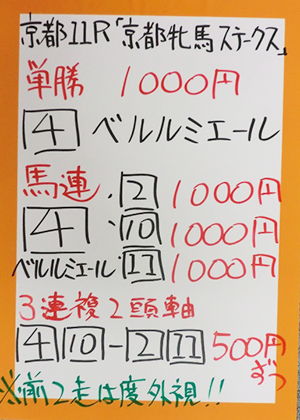 京都11R「京都牝馬ステークス」
単勝 1000円
4 ベルルミエール
馬連・2 1000円
4・10 1000円
ベルルミエール・11 1000円
3連複2頭軸
4 10-2 11 500円
ずつ
※前2走は度外視!!